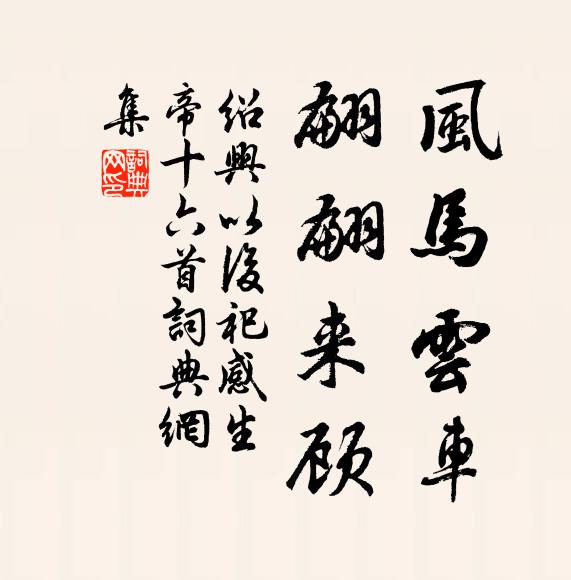 風馬雲車
翩翩来顾
绍興以後祀感生
帝十六首詞典網
集
詞典網印